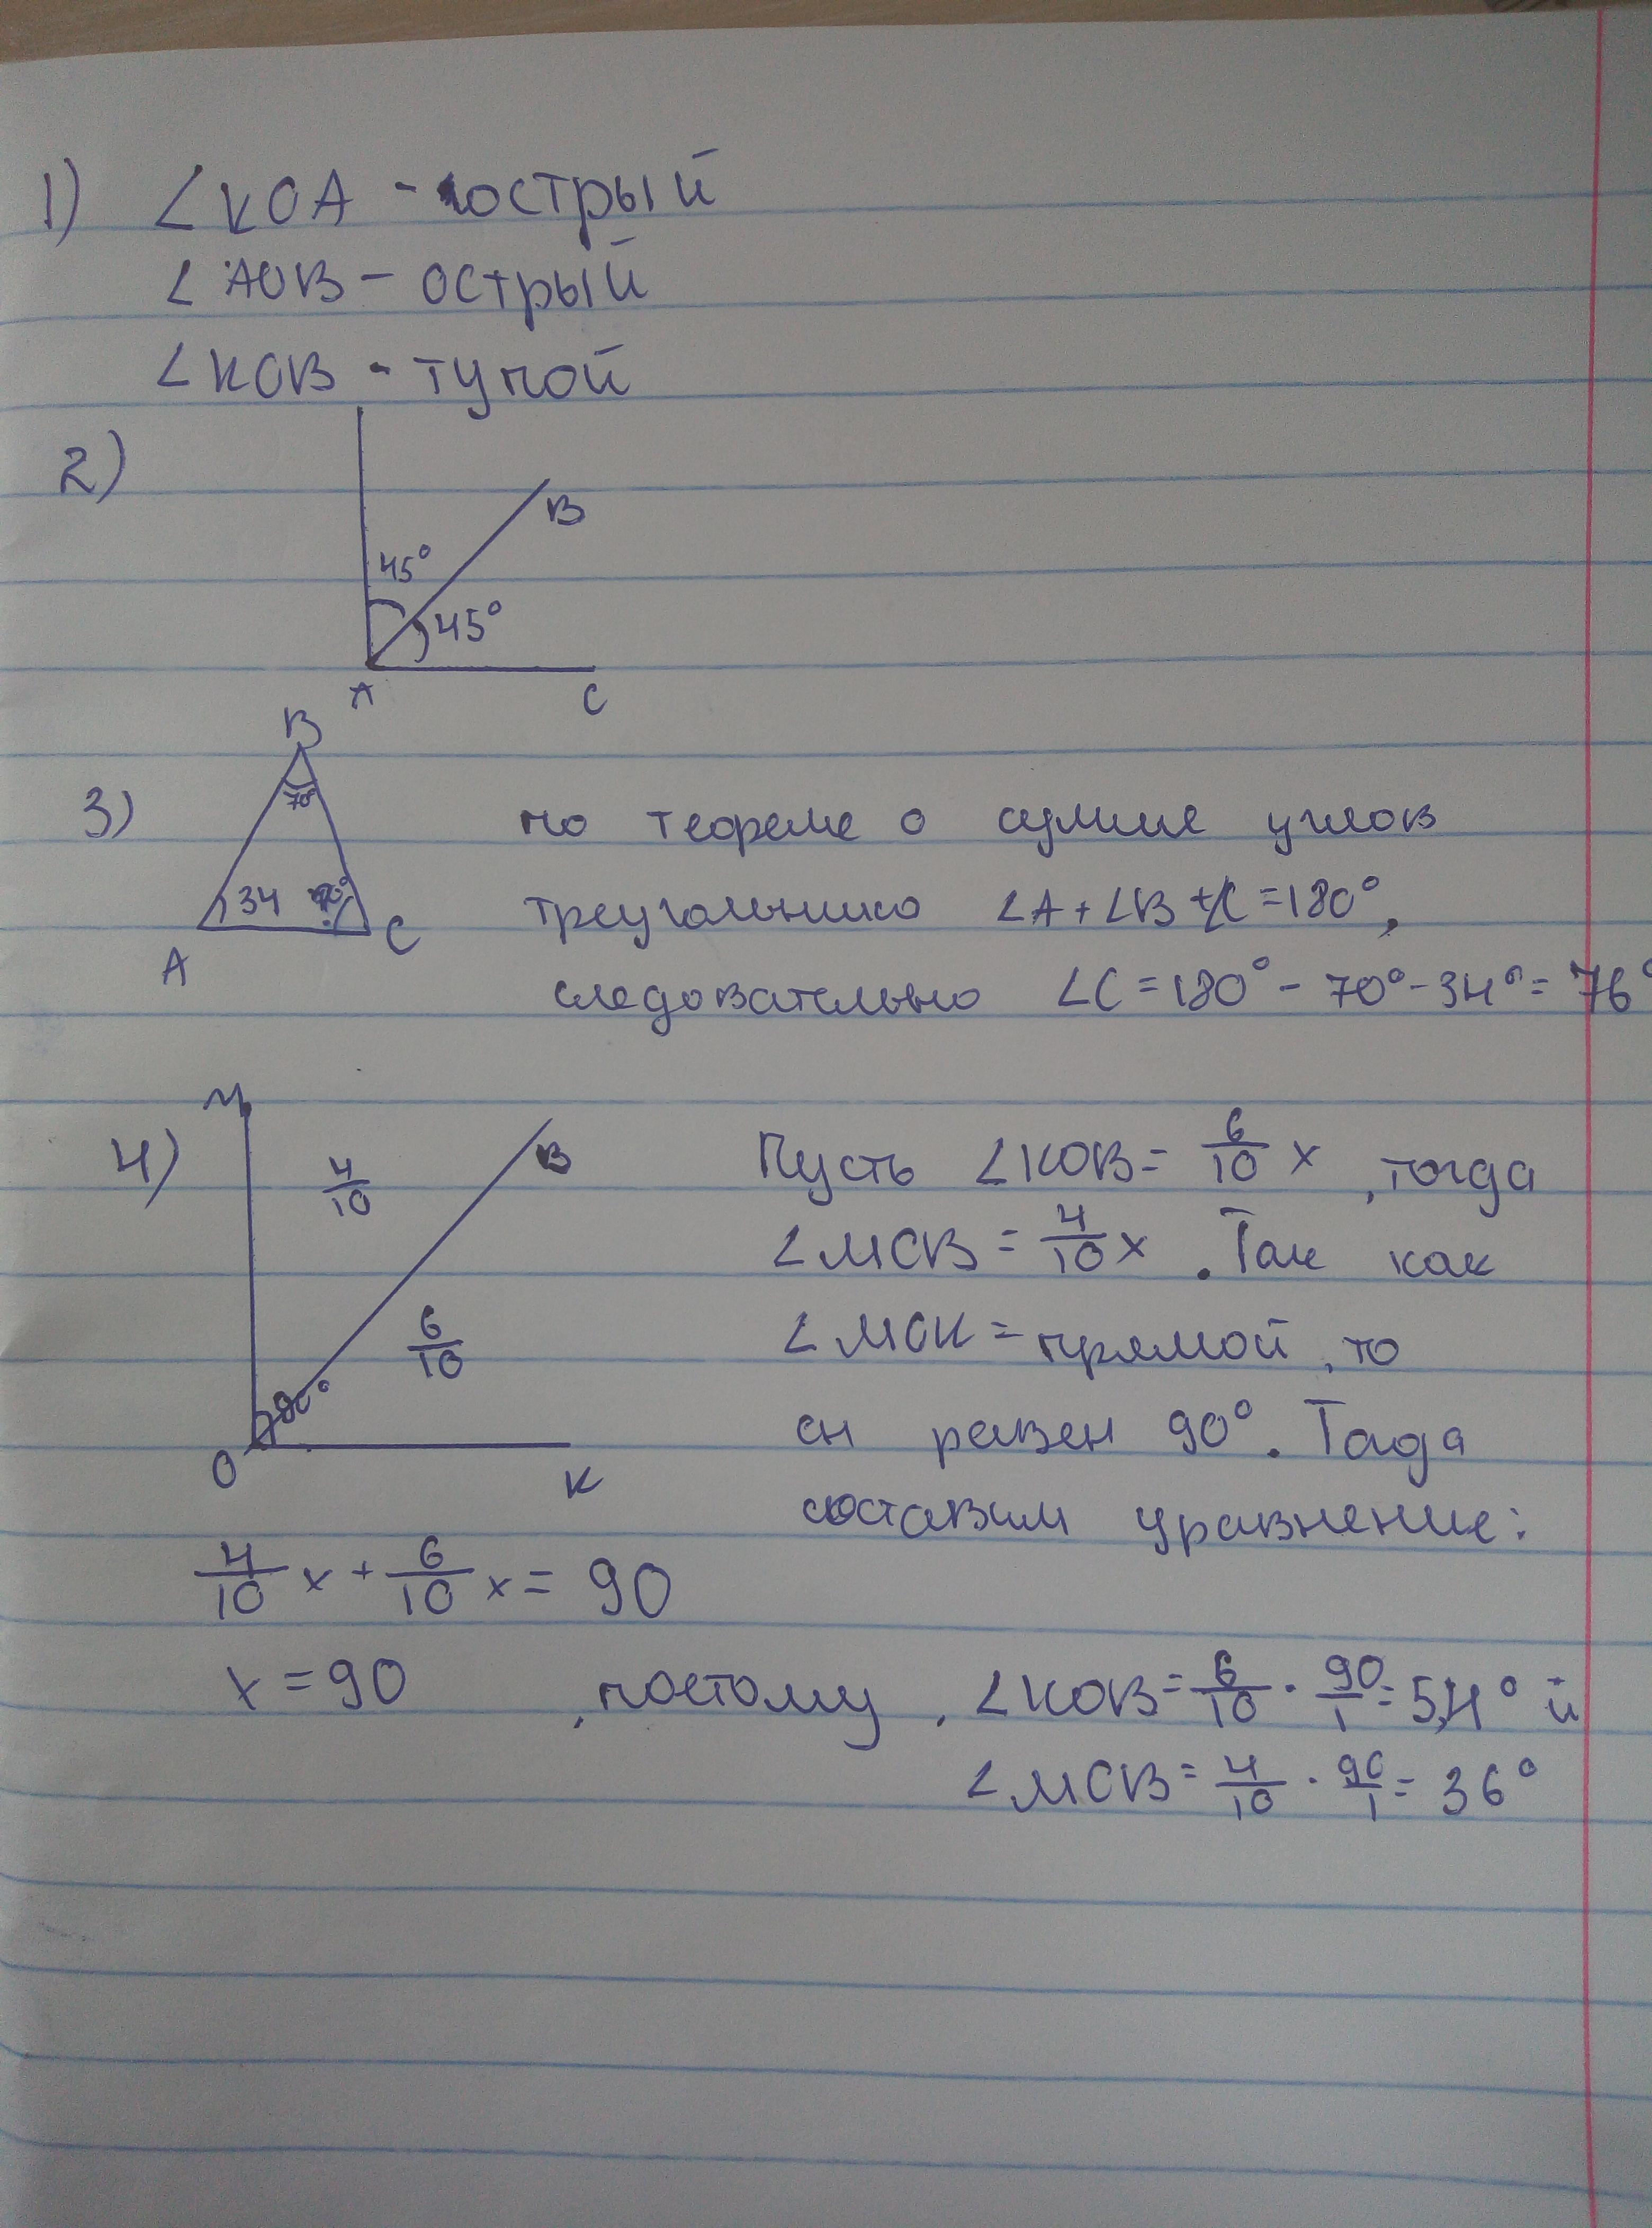 1) ∠KOA - острый
∠AOB - острый
∠KOB - тупой
2)
B
45°
45°
A C
B
3) 70° по теореме о сумме углов
34 треугольника ∠A+∠B+∠C=180°,
A C
следовательно ∠C=180°-70°-34°=76°
M
4) 4/10 B Пусть ∠KOB= 6/10 x, тогда
∠MOB = 4/10 x. Так как
6/10 ∠MOK = прямой, то
90° он равен 90°. Тогда
O K
составим уравнение:
4/10 x + 6/10 x = 90
x = 90, поэтому, ∠KOB= 6/10 · 90/1 = 5,4° и
∠MOB= 4/10 · 90/1 = 36°